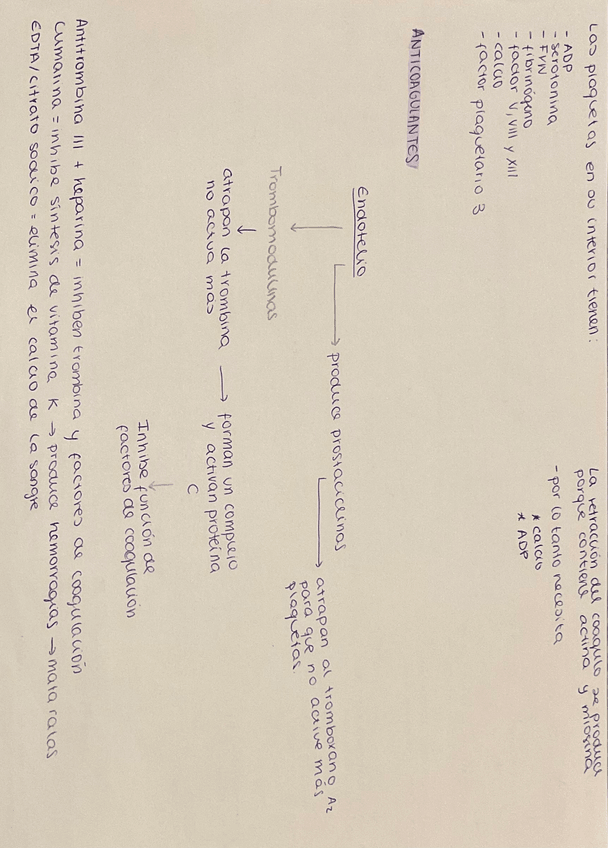 Las plaquetas en su interior tienen:
- ADP
- serotonina
- FVW
- fibrinógeno
- factor V, VIII y XIII
- calcio
- factor plaquetario 3
La retracción del coagulo se produce
porque contiene actina y miosina
- por lo tanto necesita
* calcio
* ADP
ANTICOAGULANTES
Endotelio
→ produce prostaciclinas
→ atrapan al tromboxano A2
para que no active más
plaquetas.
Trombomodulinas
↓
atrapan la trombina → forman un complejo
no actua mas y activan proteina
C
↓
Inhibe función de
factores de coagulación
Antitrombina III + heparina = inhiben trombina y factores de coagulación
Cumarina = inhibe sintesis de vitamina K → produce hemorragias → mata ratas
EDTA/citrato sodico = elimina el calcio de la sangre